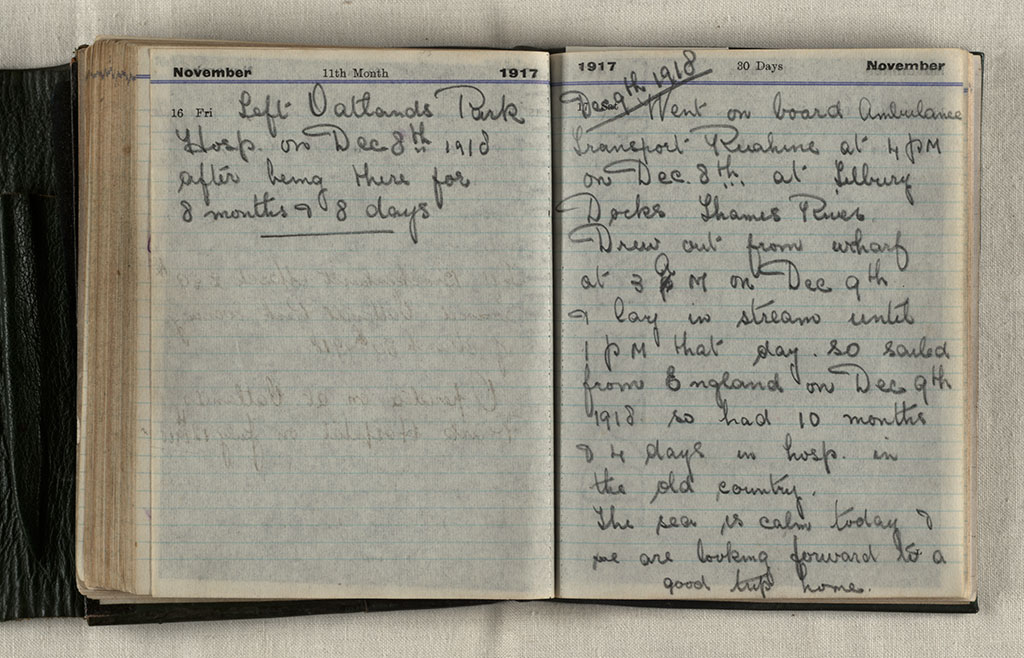 November 11th Month 1917
16 Fri Left Oatlands Park
Hosp. on Dec 8th 1918
after being there for
8 months & 8 days
1917 30 Days November
Dec 9th 1918
Went on board Ambulance
Transport Ruahine at 4 PM
on Dec. 8th at Tilbury
Docks Thames River.
Drew out from wharf
at 3 A M on Dec 9th
& lay in stream until
1 PM that day. so sailed
from England on Dec 9th
1918 so had 10 months
& 4 days in hosp. in
the old country.
The sea is calm today &
we are looking forward to a
good trip home.